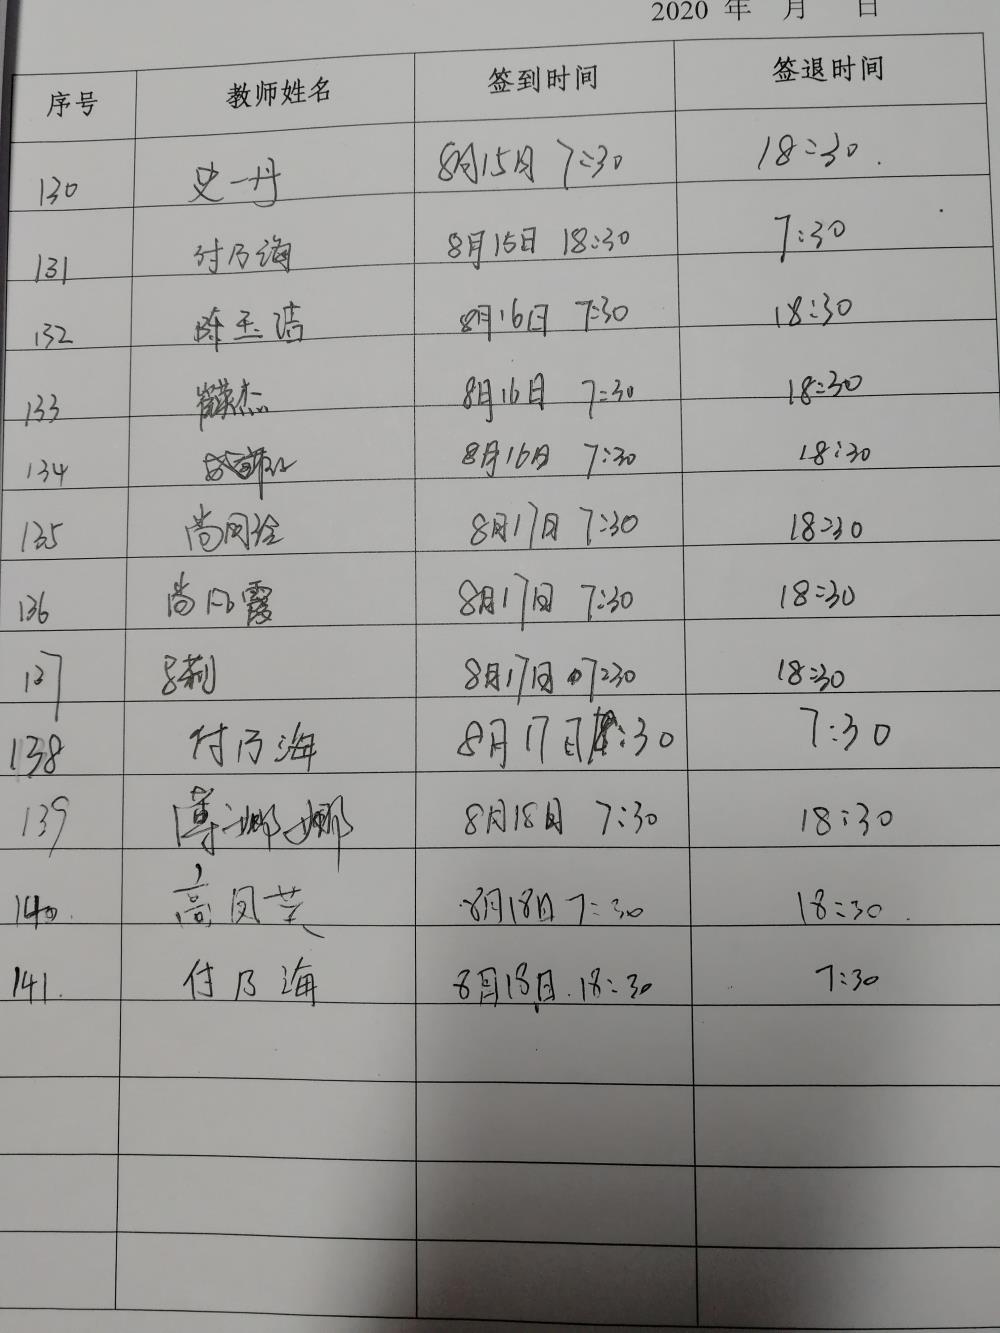 2020 年 月 日
序号 教师姓名 签到时间 签退时间
130 史一丹 8月15日 7:30 18:30.
131 付乃海 8月15日 18:30 7:30
132 陈玉洁 8月16日 7:30 18:30
133 崔荣杰 8月16日 7:30 18:30
134 8月16日 7:30 18:30
135 尚同玲 8月17日 7:30 18:30
136 尚凡霞 8月17日 7:30 18:30
137 莉 8月17日 7:30 18:30
138 付乃海 8月17日 18:30 7:30
139 薄娜娜 8月18日 7:30 18:30
140. 高凤芝 8月18日 7:30 18:30.
141. 付乃海 8月18日. 18:30 7:30